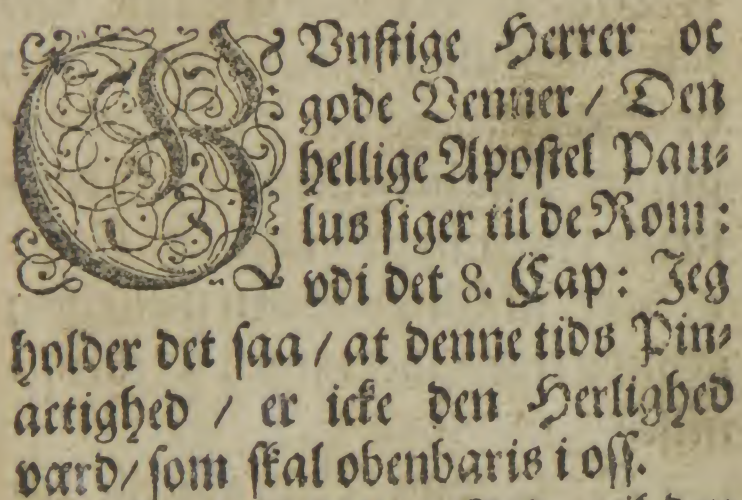 GVnstige Herrer oc
gode Venner / Den
hellige Apostel Pau-
lus siger til de Rom:
vdi det 8. Cap: Jeg
holder det saa / at denne tids Pin-
actighed / er icke den Herlighed
værd / som skal obenbaris i oss.